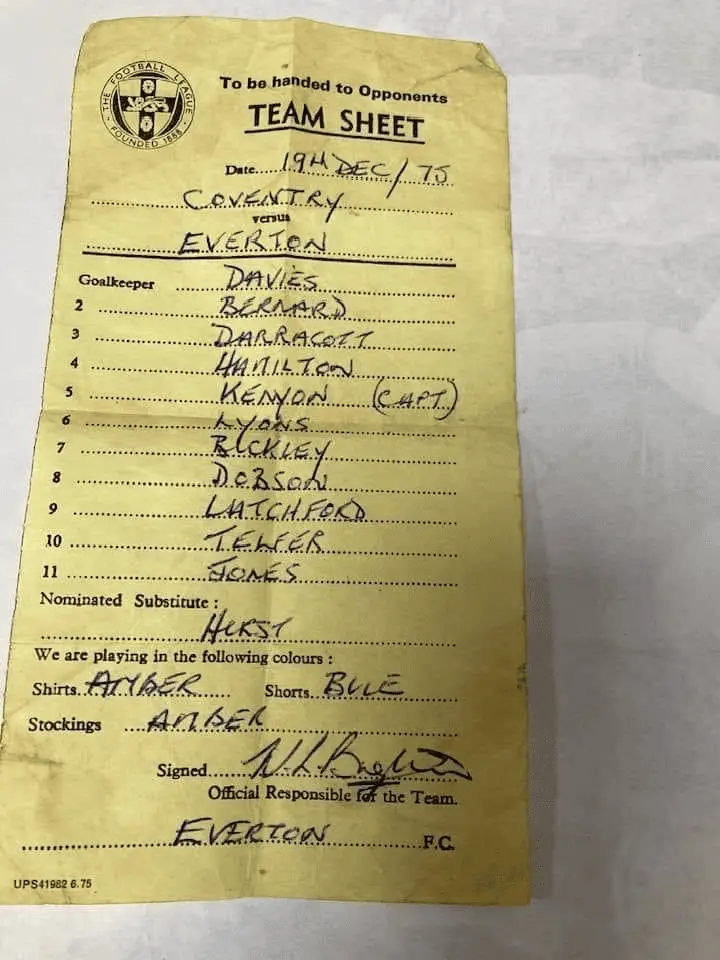 THE FOOTBALL LEAGUE
FOUNDED 1888
To be handed to Opponents
TEAM SHEET
Date....19th DEC/75
COVENTRY
versus
EVERTON
Goalkeeper DAVIES
2 BERNARD
3 DARRACOTT
4 HAMILTON
5 KENYON (CAPT)
6 LYONS
7 BUCKLEY
8 DOBSON
9 LATCHFORD
10 TELFER
11 JONES
Nominated Substitute :
HURST
We are playing in the following colours :
Shirts. AMBER Shorts. BULE
Stockings AMBER
Signed
Official Responsible for the Team.
EVERTON F.C.
UPS41982 6.75